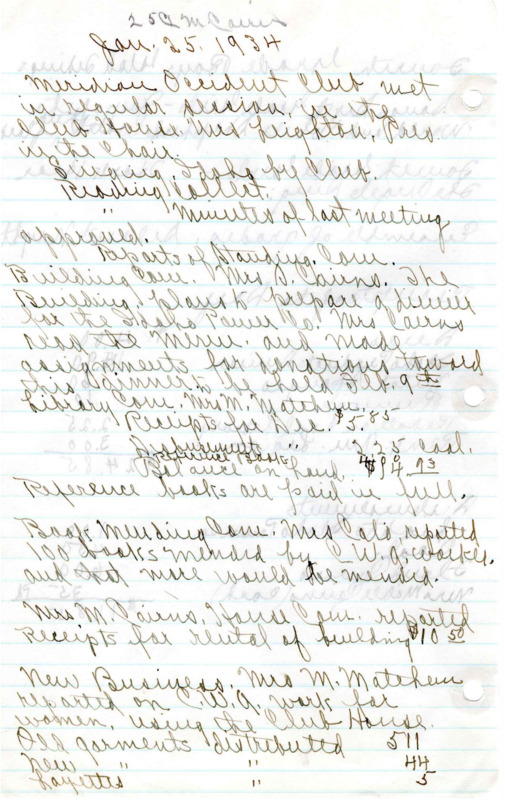 Jan. 25. 1934
Meridian Occident Club met
in regular session, in the
Club House, Mrs Leighton, Pres.
in the Chair.
Singing, Idaho by Club.
Reading Collect.
" Minutes of last meeting
approved.
Reports of Standing Com.
Building Com. Mrs J. Cairns. The
Building plans to prepare dinner
for the Idaho Power Co. Mrs Cairns
read the Menu and made
assignments for donations toward
this dinner to be held Feb. 9th
Library Com. Mrs M. Matthew.
Receipts for Dec. $5.85
Disbursements " 2.25 coal.
Reference Books
Balance on hand.
Reference books are paid in full.
Book Mending Com. Mrs Cato, reported
100 books mended by C.W.A. worker,
and that more would be mended.
Mrs M. Cairns, House Com. reported
receipts for rental of building $10 50
New Business. Mrs M. Matthew
reported on C.W.A. work for
women, using the Club House.
Old garments distributed 511
New " " 44
Layettes " 5